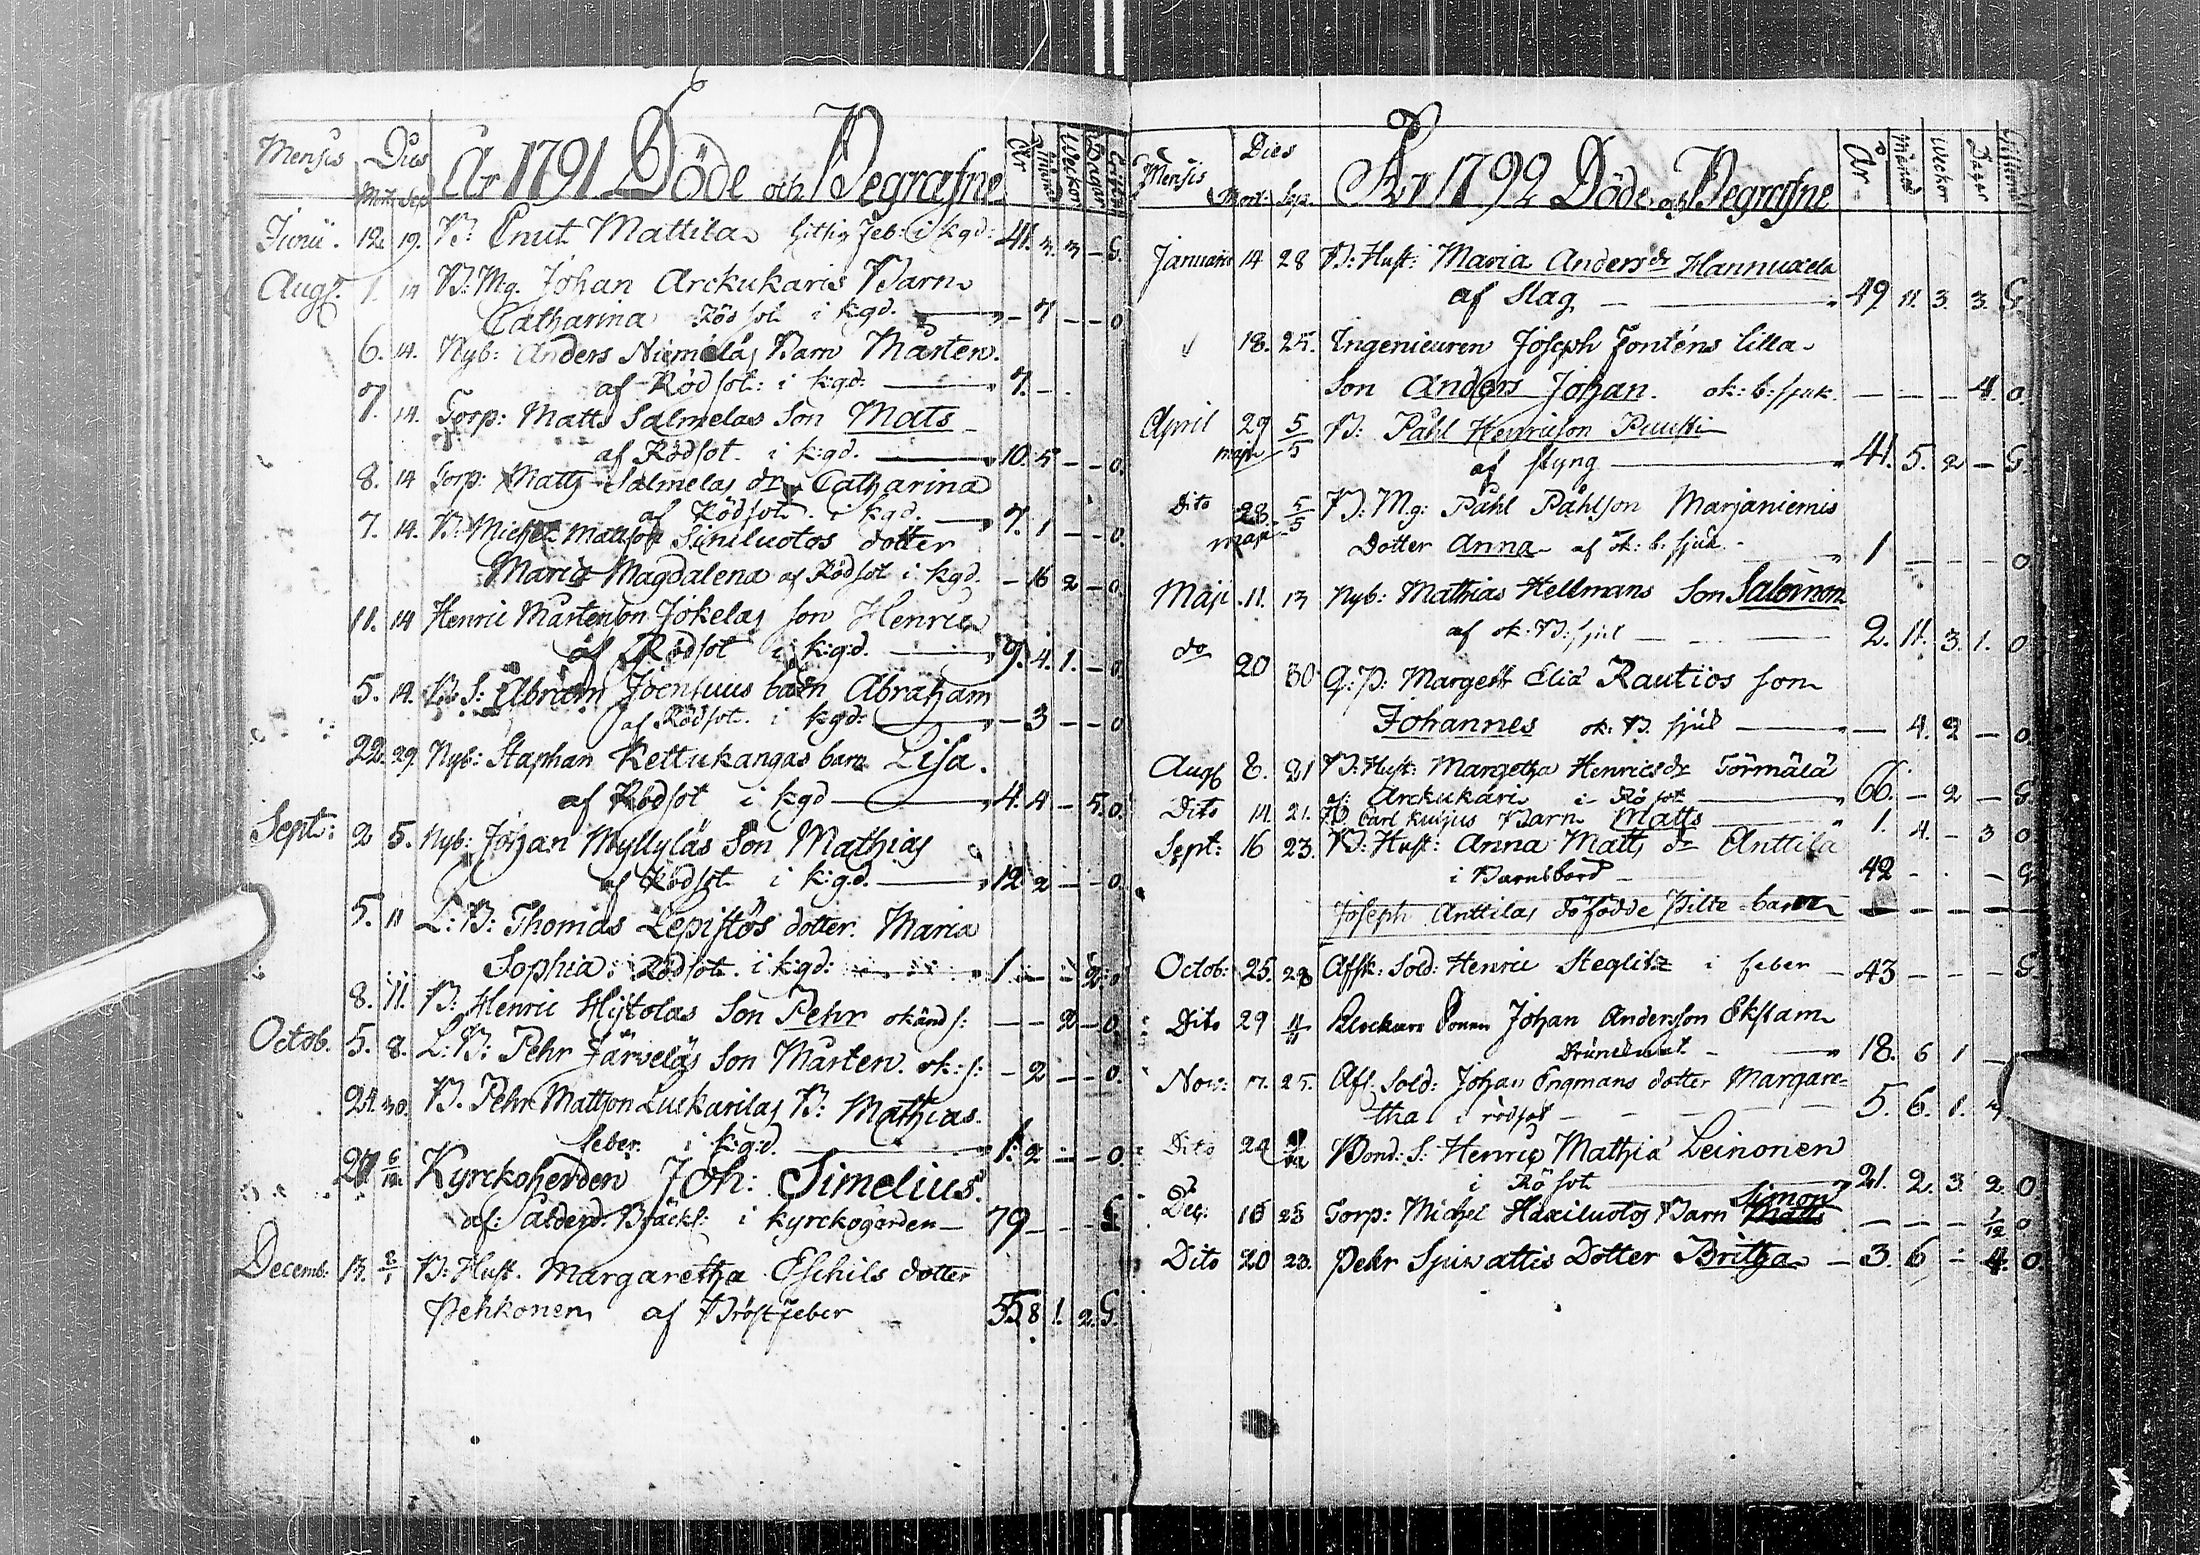 Mensis Dies År 1791 Döde och Begrafne År Månad Weckor Dagar
Mort. Sep.
Junii. 12. 19. B: Cnut Mattila hitzig feb: i k:g:d: 41. 3. 3 – G.
Aug: 1. 14 B: Mg. Johan Arckukaris Barn
Catharina Rödsot i k:g:d. – 7 – – 0
6. 14. Nyb: Anders Niemeläs Barn Mårten.
af Rödsot: i k:g:d: 7. –
7. 14. Torp: Matts Salmelas Son Mats
af Rödsot i k:g:d. 10. 5 – – 0.
8. 14 Torp: Matts Salmelas dr Catharina
af Rödsot i k:g:d. 7. 1 – – 0.
7. 14. B: Michel Mattson Siniluotos dotter
Maria Magdalena af Rödsot i k:g:d. – 16 2 – 0
11. 14 Henric Mårtenson Jokelas son Henric
af Rödsot i k:g:d. 9. 4. 1. – 0
5. 14. B: S: Abram Joensuus barn Abraham
af Rödsot i k:g:d: – 3 – – 0
22. 29. Nyb: Staphan Kettukangas barn Lisa.
af Rödsot i k:g:d 4. 4 – 5. 0.
Sept: 2 5. Nyb: Johan Myllyläs Son Mathias
af Rödsot i k:g:d. 12 2 – – 0.
5. 11 L: B: Thomas Lepistös dotter Maria
Sophia: Rödsot i k:g:d: 1. – – 2. 0
8. 11. B: Henric Hijtolas Son Pehr okänd s: – – 2 – 0
Octob. 5. 8. L: B: Pehr Järveläs Son Mårten. ok: s: – 2 – – 0.
24. 30. B. Pehr Mattson Luckarilas B: Mathias.
feber. i k:g:d. 1. 2 – – 0.
27 6/12 Kyrckoherden Joh: Simelius.
af: Ålderd. Bräckl: i kyrckogården – 79 – – – G
Decemb: 13. B: Hust. Margaretha Eschils dotter
Pehkonen af Bröstfeber 55. 8 1. 2. G.
Mensis Dies År 1792 Döde och Begrafne År Månad Weckor Dagar
Mort: Sep.
Januarii 14 28 B: Hust: Maria Anders dr Hannuxela
af Slag 49 11. 3 3. G.
18. 25. Ingenieuren Joseph Fonténs lilla
Son Anders Johan. ok: b: sjuk. – – – 4. 0.
April 29 5/5 B: Påhl Henricson Puuski
af styng 41. 5. 2 – G.
Dito 28 5/5 B: Mg: Påhl Påhlson Marjaniemis
Dotter Anna af ok: b: sjuk. 1 – – – 0
Maji 11. 13 Nyb: Mathias Hellmans Son Salomon
af ok: B: sjuk 2. 11. 3. 1. 0
do 20 30 Margeth Elia Rautios son
Johannes ok. B. sjuk – 4. 2 – 0
Aug: 8. 21 B: Hust: Margetha Henricsdr Törmälä
Arckukari i Rösot 66. – 2 – G.
Dito 14. 21. Carl Kuljus Barn Matts 1. 4. – 3 0
Sept: 16 23. B: Hust: Anna Matts dr Anttila
i Barnsbörd 42 – – – G
Joseph Anttilas döfödde Pilte-barn – – – –
Octob: 25. 28 Afsk: Sold: Henric Steglitz i feber – 43 – – – G
Dito 29 4/11 Klockare Sonen Johan Anderson Ekstam
Drunknat 18. 6 1 –
Nov: 17. 25. Afs: Sold: Johan Engmans dotter Margare=
tha i rödsot 5. 6. 1.
Dito 24 Bond: S: Henric Mathia Leinonen
i Rösot 21. 2. 3. 2. 0
Dec: 18 23 Torp: Michel Haxiluotos Barn Simon Matts – – – 1/12 0
Dito 20 23. Pehr Sjuwattis Dotter Britha – 3. 6 – 4. 0